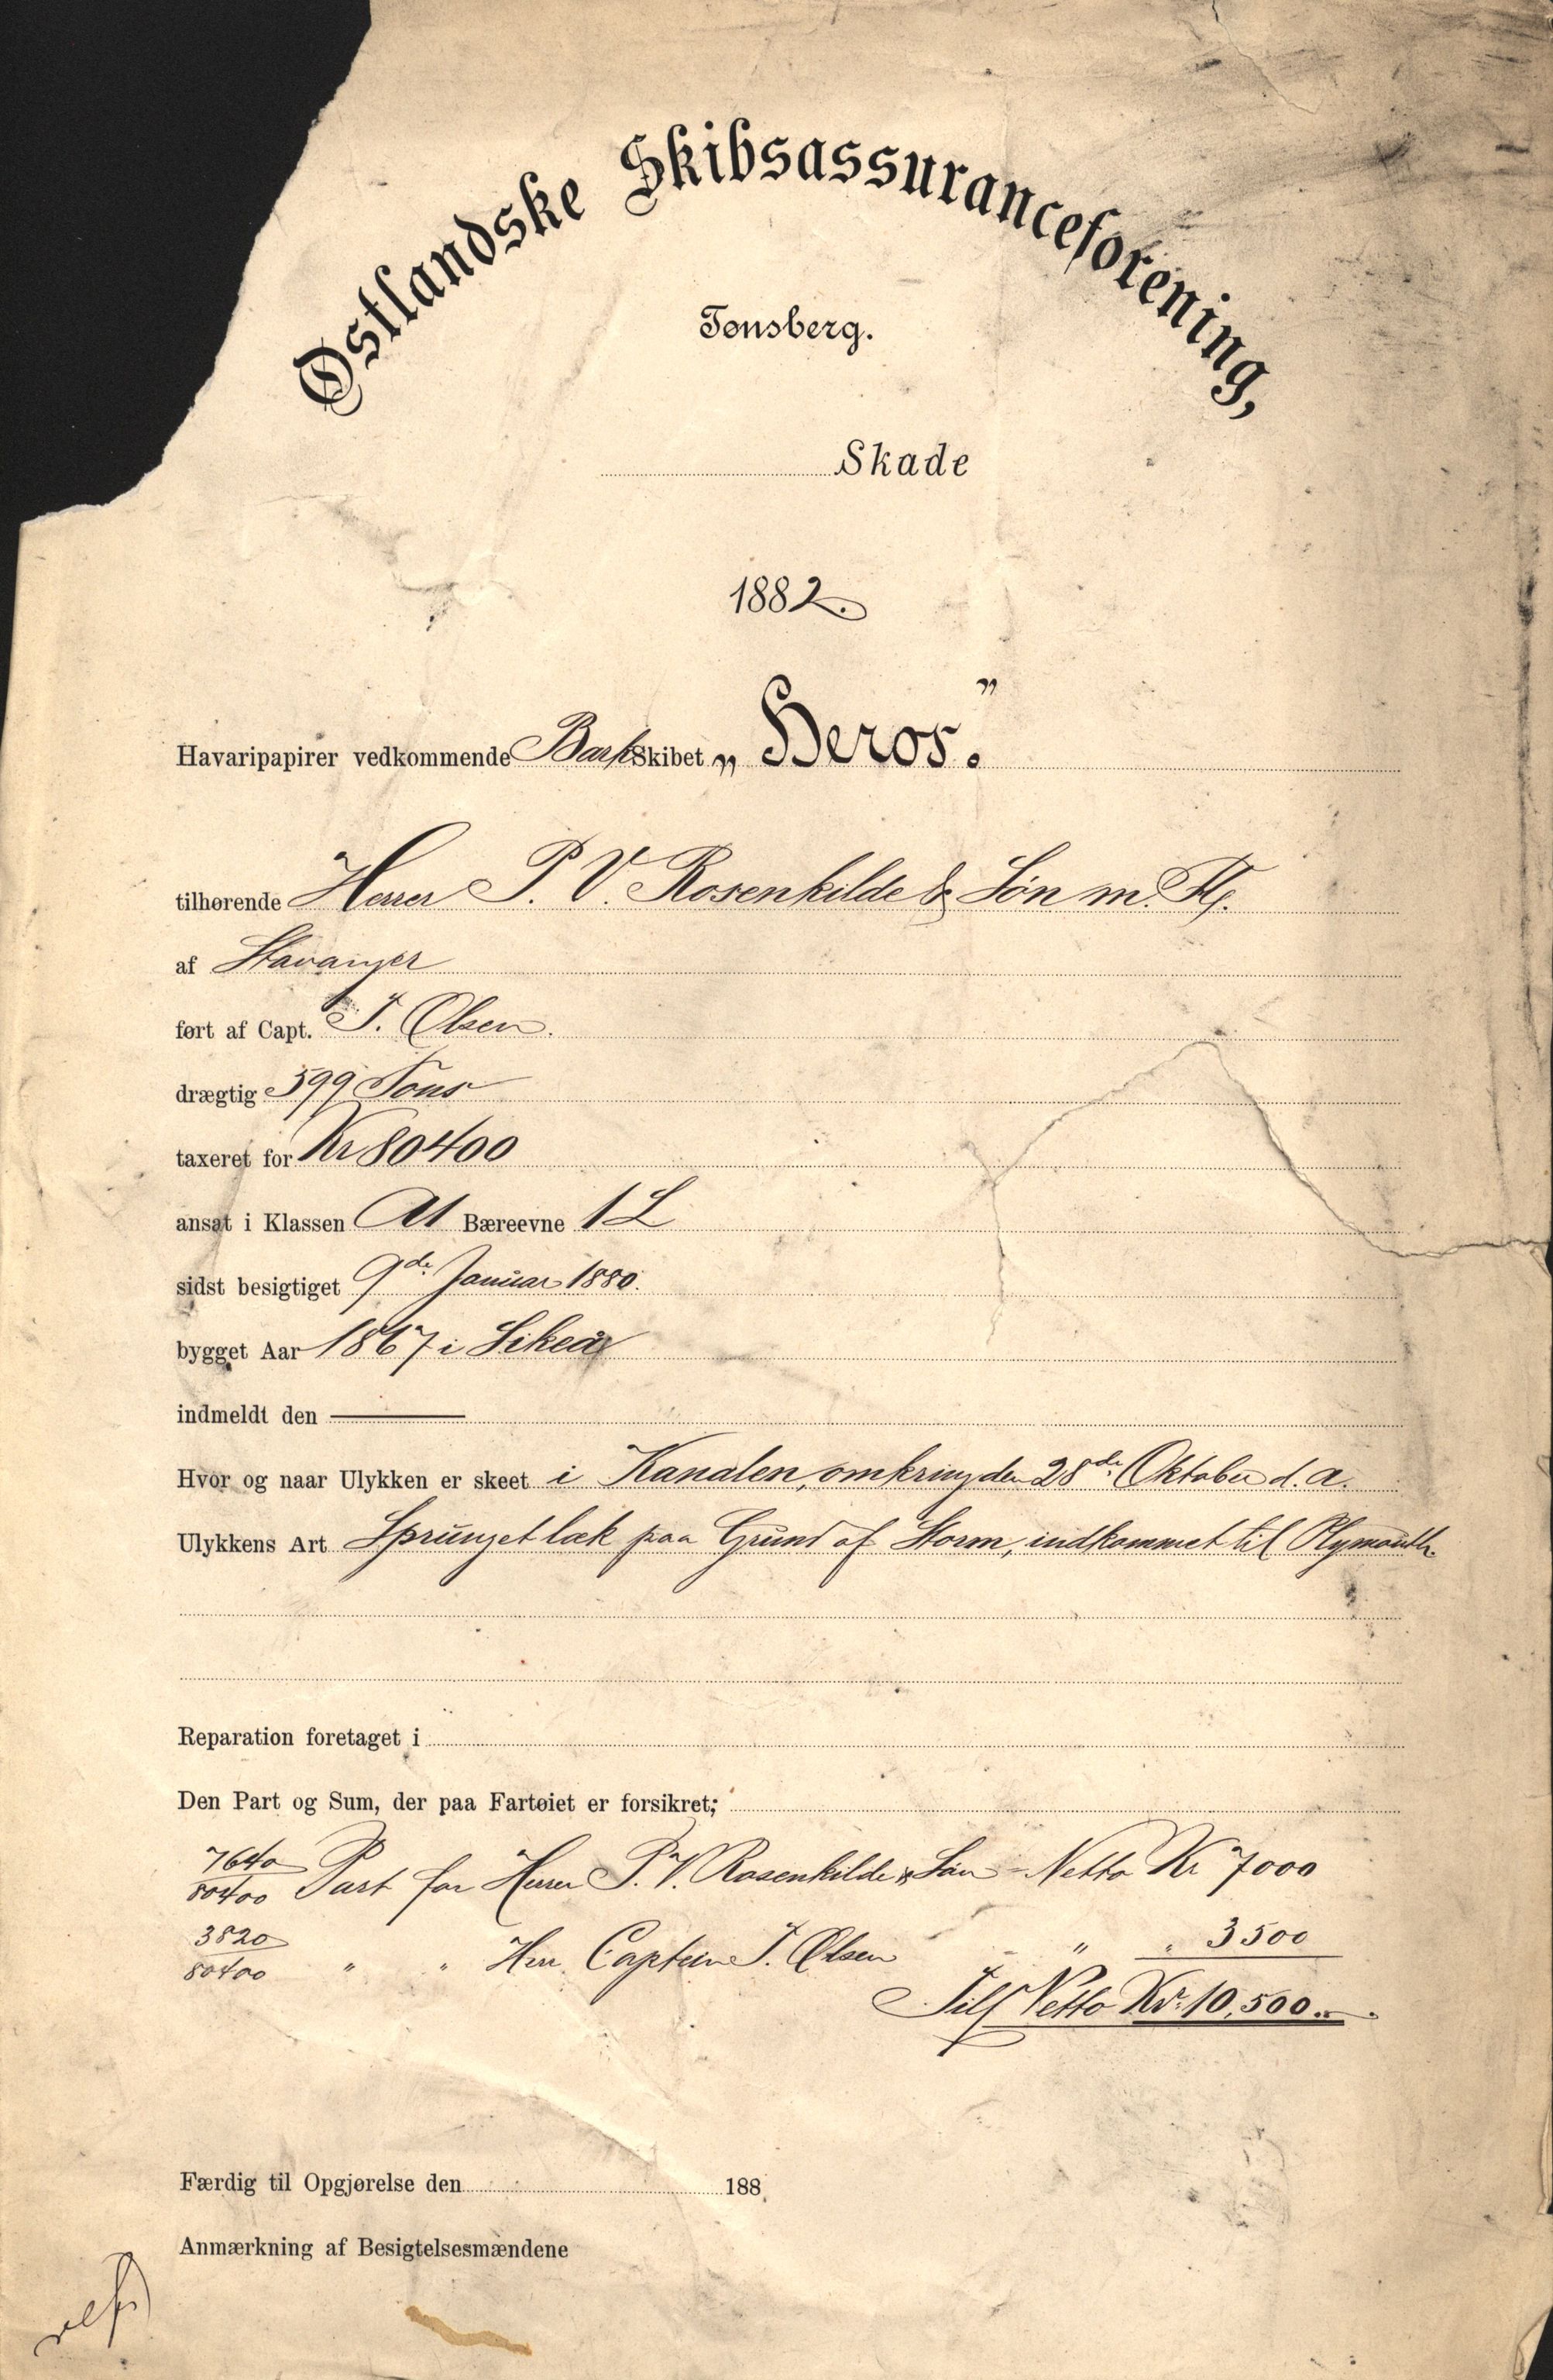 Østlandske Skibsassuranceforening,
Tønsberg.
Skade
1882.
Havaripapirer vedkommende Bark Skibet „Heros."
tilhørende Herrer P. V. Rosenkilde & Søn m. Fl.
af Stavanger
ført af Capt. J. Olsen.
drægtig 599 Tons
taxeret for Kr 80400
ansat i Klassen A1 Bæreevne 1 L
sidst besigtiget 9de Januar 1880.
bygget Aar 1867 i Sikeå
indmeldt den —
Hvor og naar Ulykken er skeet i Kanalen, omkring den 28de Oktober d. A.
Ulykkens Art Sprunget læk paa Grund af Storm, indkommet til Plymouth.
Reparation foretaget i
Den Part og Sum, der paa Fartøiet er forsikret;
7640/80400 Part for Herrer P. V. Rosenkilde & Søn - Netto Kr 7000
3820/80400 " " Herr Captein J. Olsen - " " 3500
Tils Netto Kr. 10,500.-
Færdig til Opgjørelse den 188
Anmærkning af Besigtelsesmændene